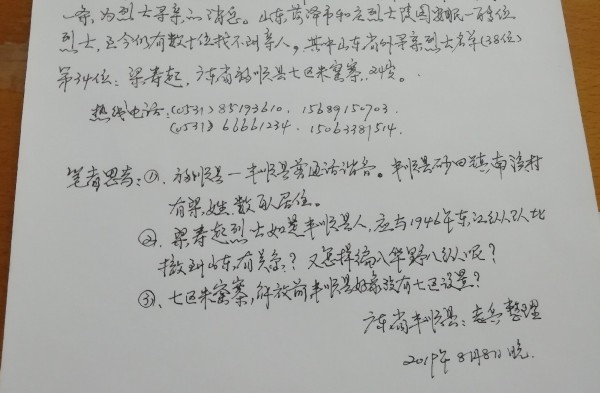 为烈士寻亲的消息。山东菏泽市和庄烈士陵园安眠一百多位
烈士,至今仍有数十位找不到亲人,其中山东省外寻亲烈士名单(38位)
第34位:梁寿起,广东省 顺县七区朱窝寨,24岁。
热线电话:(0531)85193610、15689150703.
(0531)66661234、15063387514.
笔者思考:①、 顺县—丰顺县 话谐音。丰顺县砂田镇南洑村
有梁姓数百人居住。
②、梁寿起烈士如是丰顺县人,应与1946年东江纵队北
撤到山东,有关系?又怎样编入华野八纵呢?
③、七区朱窝寨,解放前丰顺县好象没有七区设置?
广东省丰顺县:志兵整理
2019年8月8日晚.